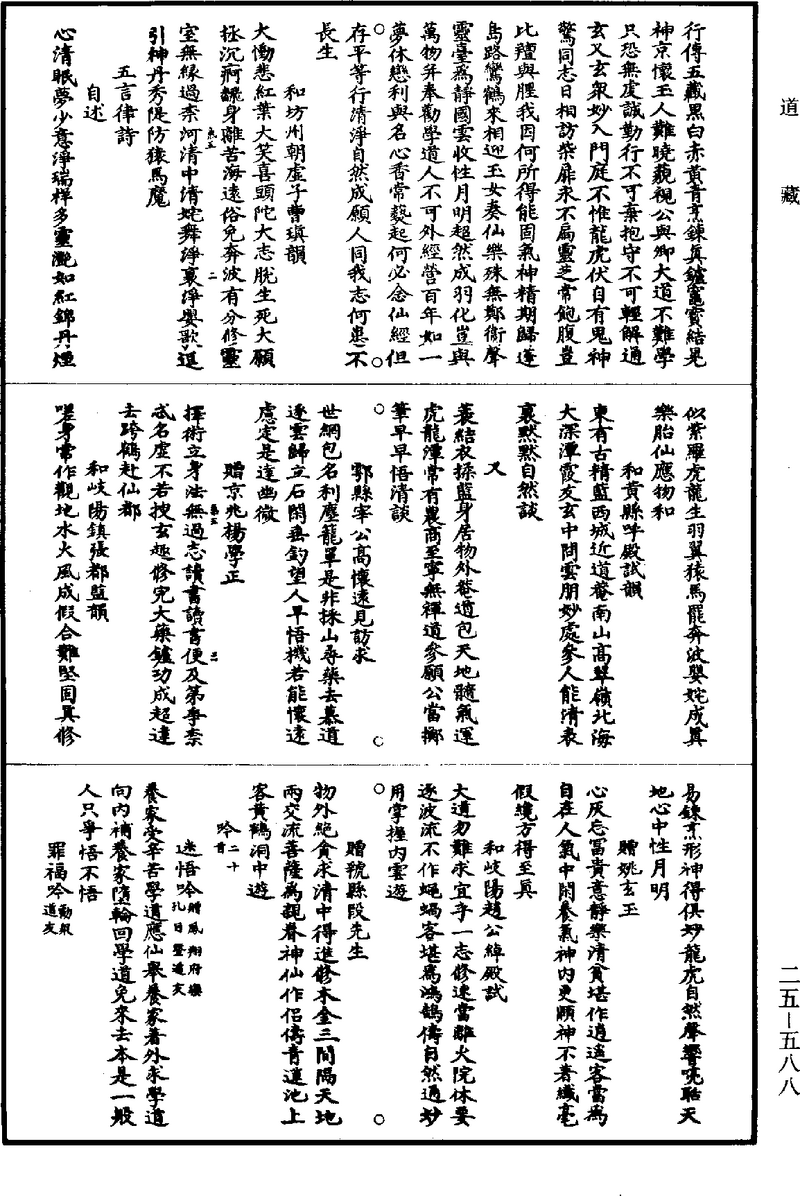 道藏
行傳五藏黑白赤黃青烹鍊真鑪竈寶結晃
神京懷玉人難曉藐視公與卿大道不難學
只恐無虔誠勤行不可棄抱守不可輕解通
玄又玄衆妙入門庭不惟龍虎伏自有鬼神
驚同志日相訪柴扉永不扃靈芝常飽腹豈
比羶與腥我因何所得能固氣神精期歸蓬
島路鸞鶴來相迎玉女奏仙樂殊無鄭衛聲
靈臺爲靜國雲收性月明超然成羽化豈與
萬物并奉勸學道人不可外經營百年如一
夢休戀利與名心香常爇起何必念仙經但
存平等行清淨自然成願人同我志何患不
長生
和坊州朝虛子曹瑱韻
大慟悲紅葉大笑喜頭陀大志脫生死大願
拯沉痾饑身離苦海遠俗免奔波有分修靈
室無緣過柰河清中清姹舞淨裏淨嬰歌逗
引神丹秀隄防猿馬魔
五言律詩
自述
心清眠夢少意淨瑞祥多靈灔如紅錦丹煙
似紫羅虎龍生羽翼猿馬罷奔波嬰姹成真
樂胎仙應物和
和黃縣呼殿試韻
東有古精藍西城近道菴南山高翠嶺北海
大深潭霞友玄中問雲朋妙處參人能清表
裏黙黙自然談
又
蓑結衣採藍身居物外菴道包天地髓氣運
虎龍潭常有農商至寧無禪道參願公當擲
筆早早悟清談
鄠縣宰公高懷遠見訪求
世網包名利塵籠罩是非採山尋藥去慕道
逐雲歸立石閑垂釣望人早悟機若能懷遠
慮定是達幽微
贈京兆楊學正
擇術立身法無過志讀書讀書便及第爭柰
忒名虛不若搜玄趣修完大藥鑪功成超達
去跨鶴赴仙都
和岐陽鎮張都監韻
嗟身常作觀地水火風成假合難堅固真修
易鍊烹形神得俱妙龍虎自然聲響喨聒天
地心中性月明
贈姚玄玉
心灰忘富貴意靜樂清貧堪作逍遙客當爲
自在人氣中閑養氣神內更頤神不著纖毫
假纔方得至真
和岐陽趙公綽殿試
大道勿難求宜乎一志修速當離火院休要
逐波流不作蠅蝸客堪爲鴻鵠儔自然通妙
用掌握內雲遊
贈虢縣段先生
物外絶貪求清中得進修木金三間隔天地
兩交流菩薩爲親眷神仙作侶儔青蓮池上
客黃鶴洞中遊
吟二十首
迷悟吟贈鳳翔府樓孔目暨道友
養家受辛苦學道應仙舉養家著外求學道
向內補養家隨輪回學道免來去本是一般
人只爭悟不悟
罪福吟勸衆道友
二五—五八八